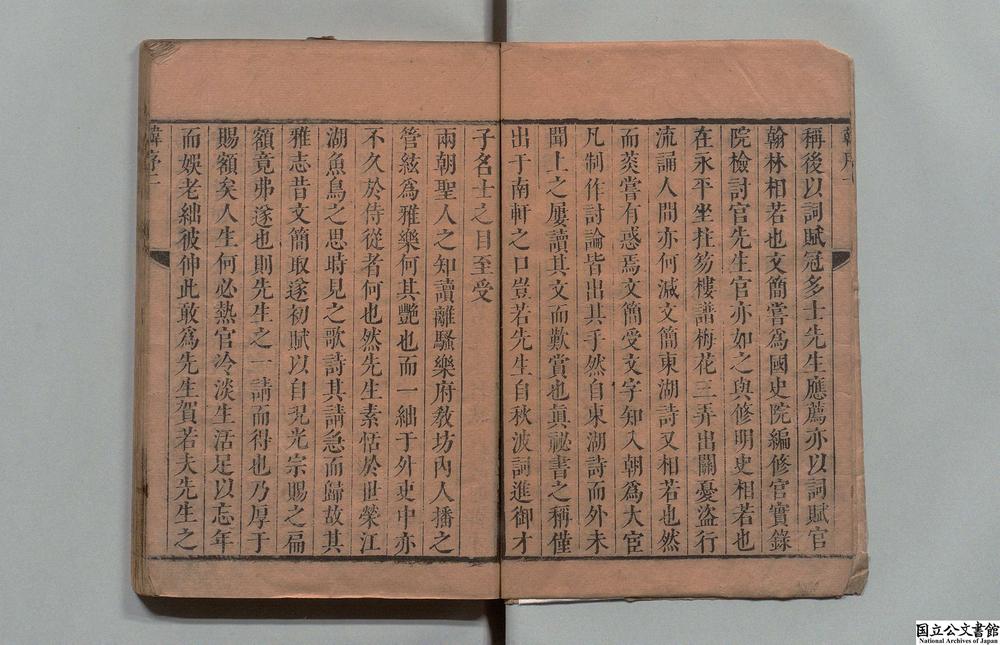 稱後以詞賦冠多士先生應薦亦以詞賦官
翰林相若也文簡嘗爲國史院編修官實錄
院檢討官先生官亦如之與修明史相若也
在永平坐拄笏樓譜梅花三弄出關憂盜行
流誦人間亦何減文簡東湖詩又相若也然
而菼嘗有惑焉文簡受文字知入朝爲大官
凡制作討論皆出其手然自東湖詩而外未
聞上之屢讀其文而歎賞也眞祕書之稱僅
出于南軒之口豈若先生自秋波詞進御才
子名士之目至受
兩朝聖人之知讀離騷樂府敎坊內人播之
管絃爲雅樂何其艷也而一絀于外吏中亦
不久於侍從者何也然先生素恬於世榮江
湖魚鳥之思時見之歌詩其請急而歸故其
雅志昔文簡取遂初賦以自況光宗賜之扁
額竟弗遂也則先生之一請而得也乃厚于
賜額矣人生何必熱官冷淡生活足以忘年
而娛老絀彼伸此敢爲先生賀若夫先生之
韓序一
国立公文書館
National Archives of Japan